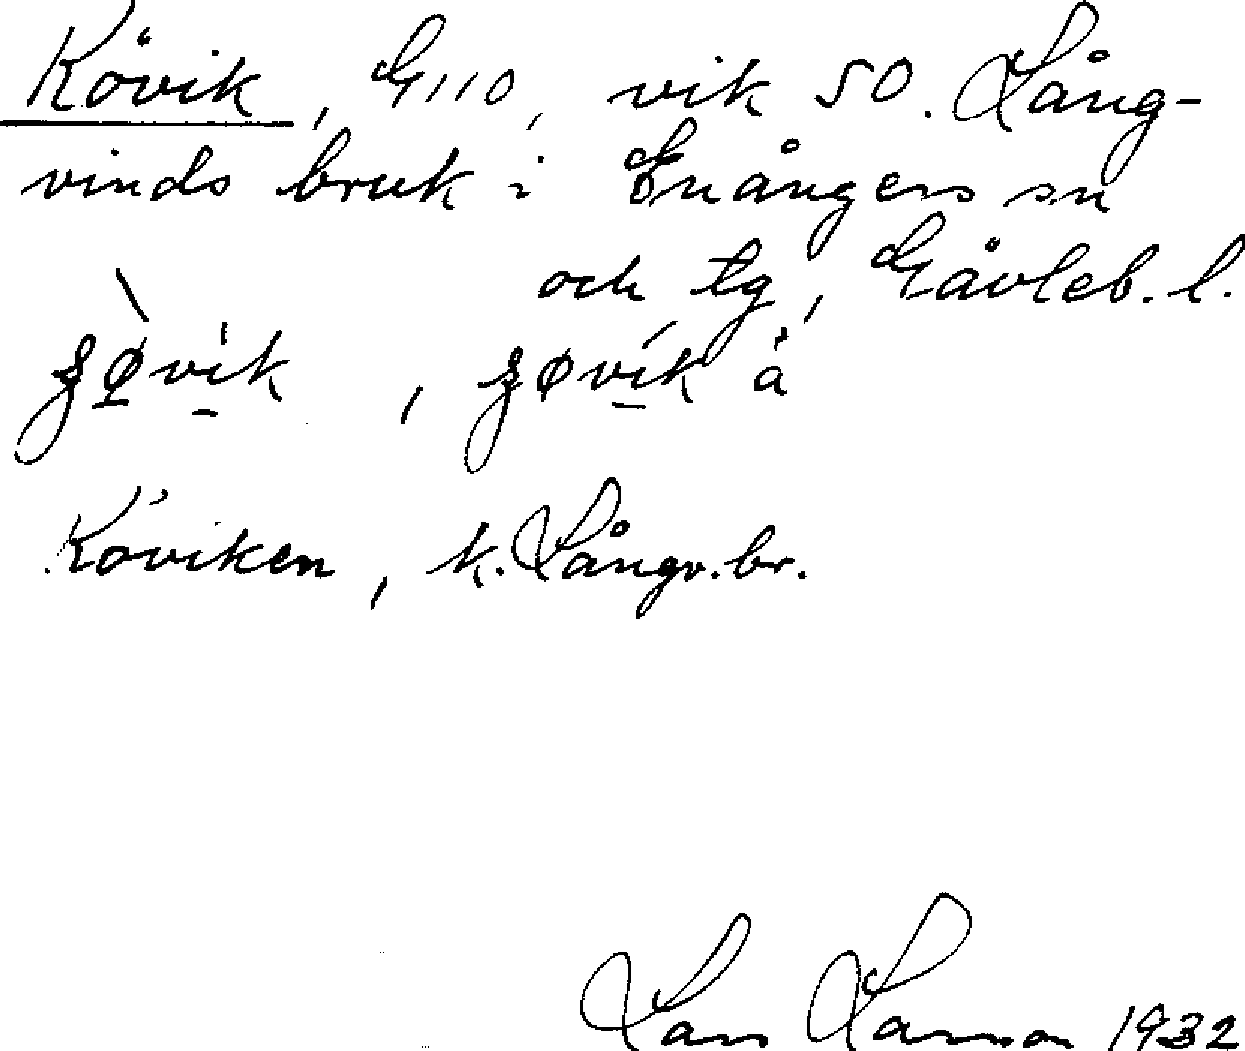 Kövik, G110, vik SO. Lång-
vinds bruk i Enångers sn
och tg, Gävleb. l.
, å
Köviken, k. Långv. br.
Lars Larsson 1932